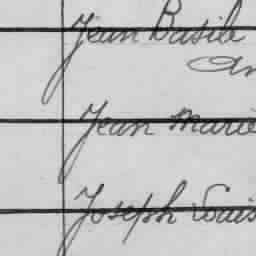 Jean Basile
An
Jean Marie
Joseph Louis